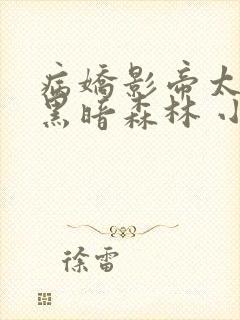 病嬌影帝太
黑暗森林 小
徐雷